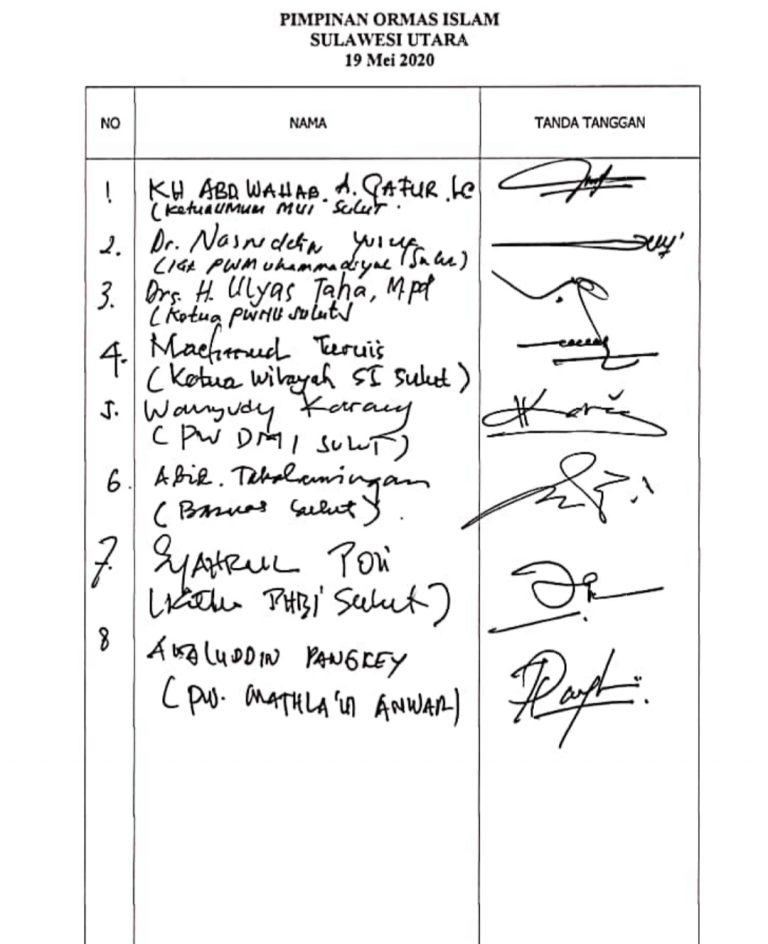 PIMPINAN ORMAS ISLAM
SULAWESI UTARA
19 Mei 2020
NO NAMA TANDA TANGGAN
1 KH ABD WAHAB. A. GAFUR. LC
(Ketua UMUM MUI Sulut.
2. Dr. Nasruddin Yusuf
PWMuhammadiyah Sulut)
3. Drs. H. Ulyas Taha, M.Pd
(Ketua PWNU Sulut)
4. Machmud Turuis
(Ketua Wilayah SI Sulut)
5.
(PW DMI SULUT)
6.
(Baznas Sulut).
7. SYAHRUL POli
(Ketua PHBI Sulut)
8
PANGKEY
(PW. MATHLA'Ul ANWAR)